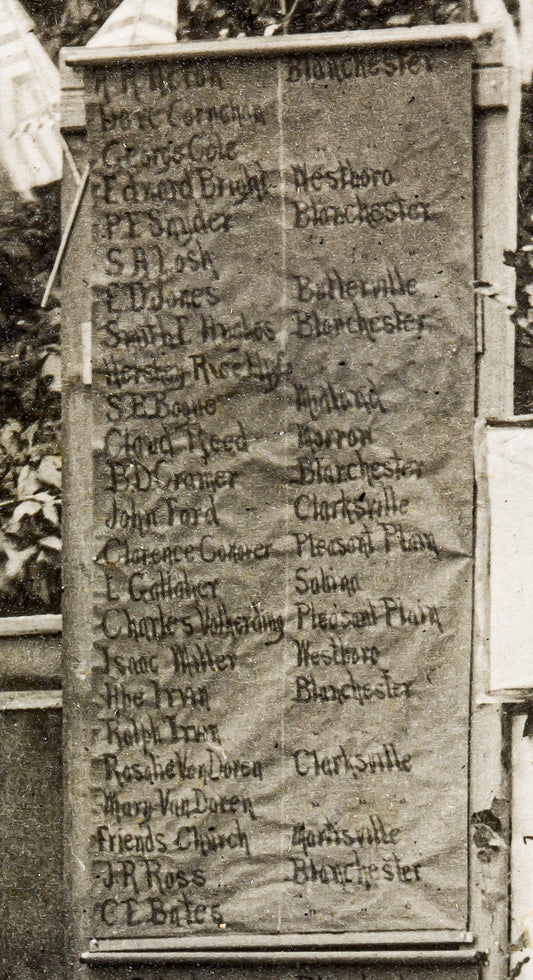 R R Acton Blanchester
Dave Carnahan " "
George Cole " "
Edward Bright Westboro
P F Snyder Blanchester
S A Losh " "
E D Jones Butlerville
Smith F Hughes Blanchester
Hershey Rice
S E Boone Midland
Claud Reed Morrow
B D Cramer Blanchester
John Ford Clarksville
Clarence Conover Pleasant Plain
L Gallaher Sabina
Charles Volkerding Pleasant Plain
Isaac Miller Westboro
Abe Irvin Blanchester
Ralph Irvin " "
Rosalie Van Doren Clarksville
Mary Van Doren " "
Friends Church Martisville
J R Ross Blanchester
C E Bates " "